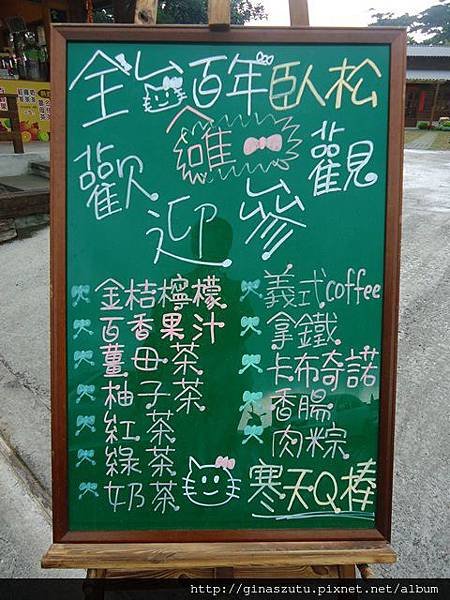 全台百年臥松
歡迎參觀
金桔檸檬
百香果汁
薑母茶
柚子茶
紅茶
綠茶
奶茶
義式coffee
拿鐵
卡布奇諾
香腸
肉粽
寒天Q棒
http://ginaszutu.pixnet.net/album